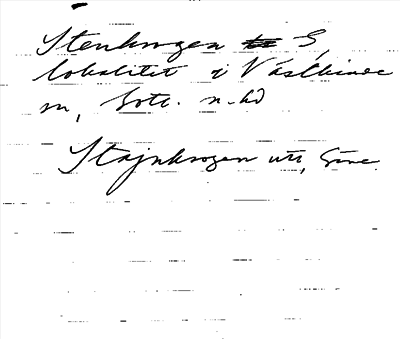 Stenkrogen S,
lokalitet i Västkinde
sn, Gotl. n. hd
Stajnkrogen utt,